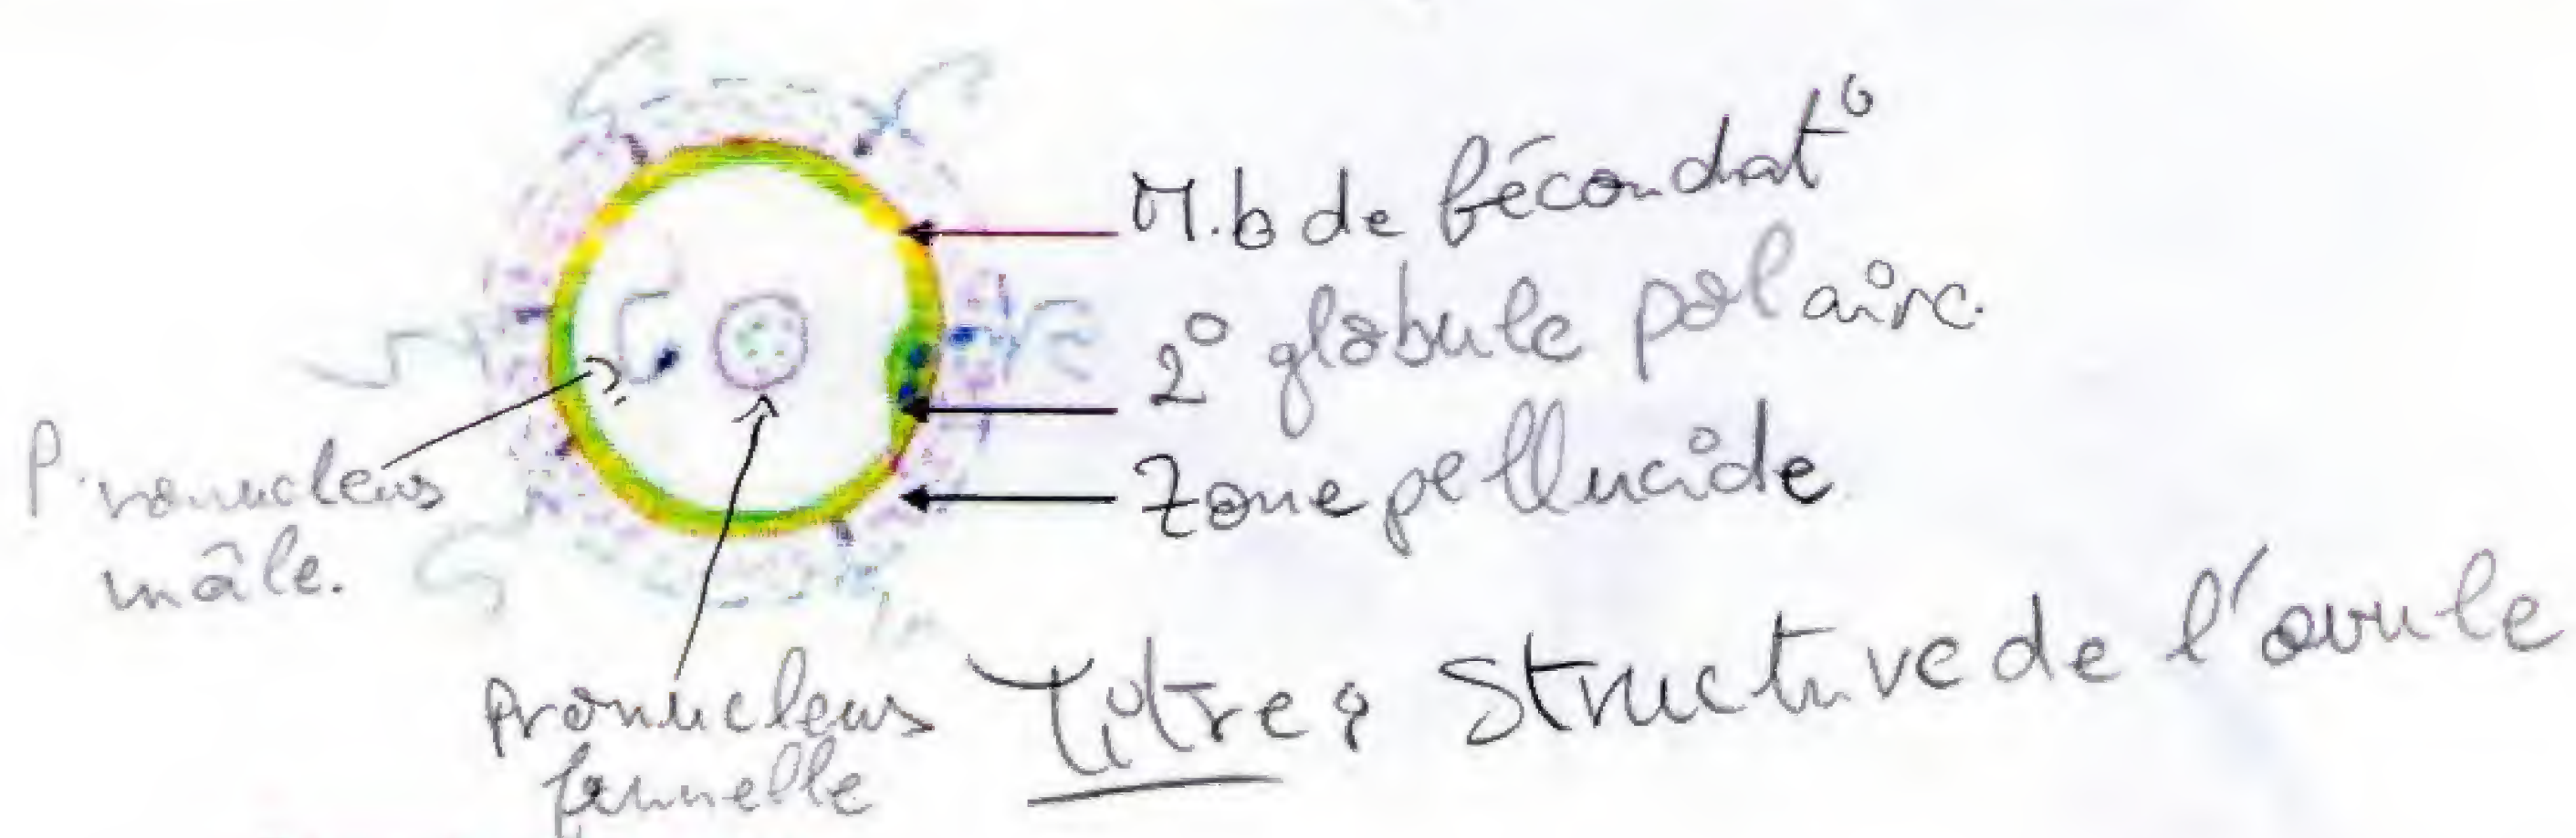 M.b de fécondat°
2° globule polaire.
Zone pellucide
Pronucleus
mâle.
Pronucleus
femelle
Titre : Structure de l'ovule